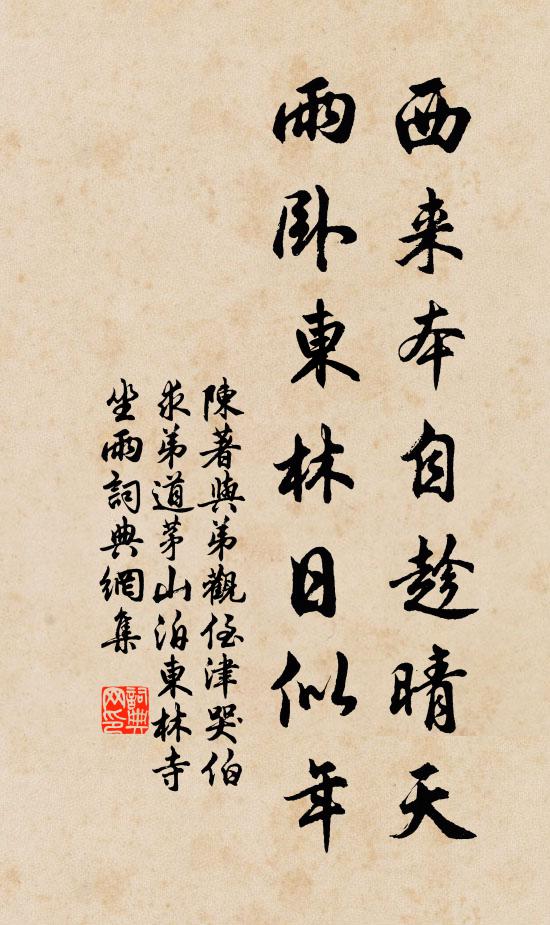 西来本自趁晴天
雨卧東林日似年
陳著與弟觀侄津哭伯
求弟道茅山泊東林寺
坐雨詞典網集
詞典網印